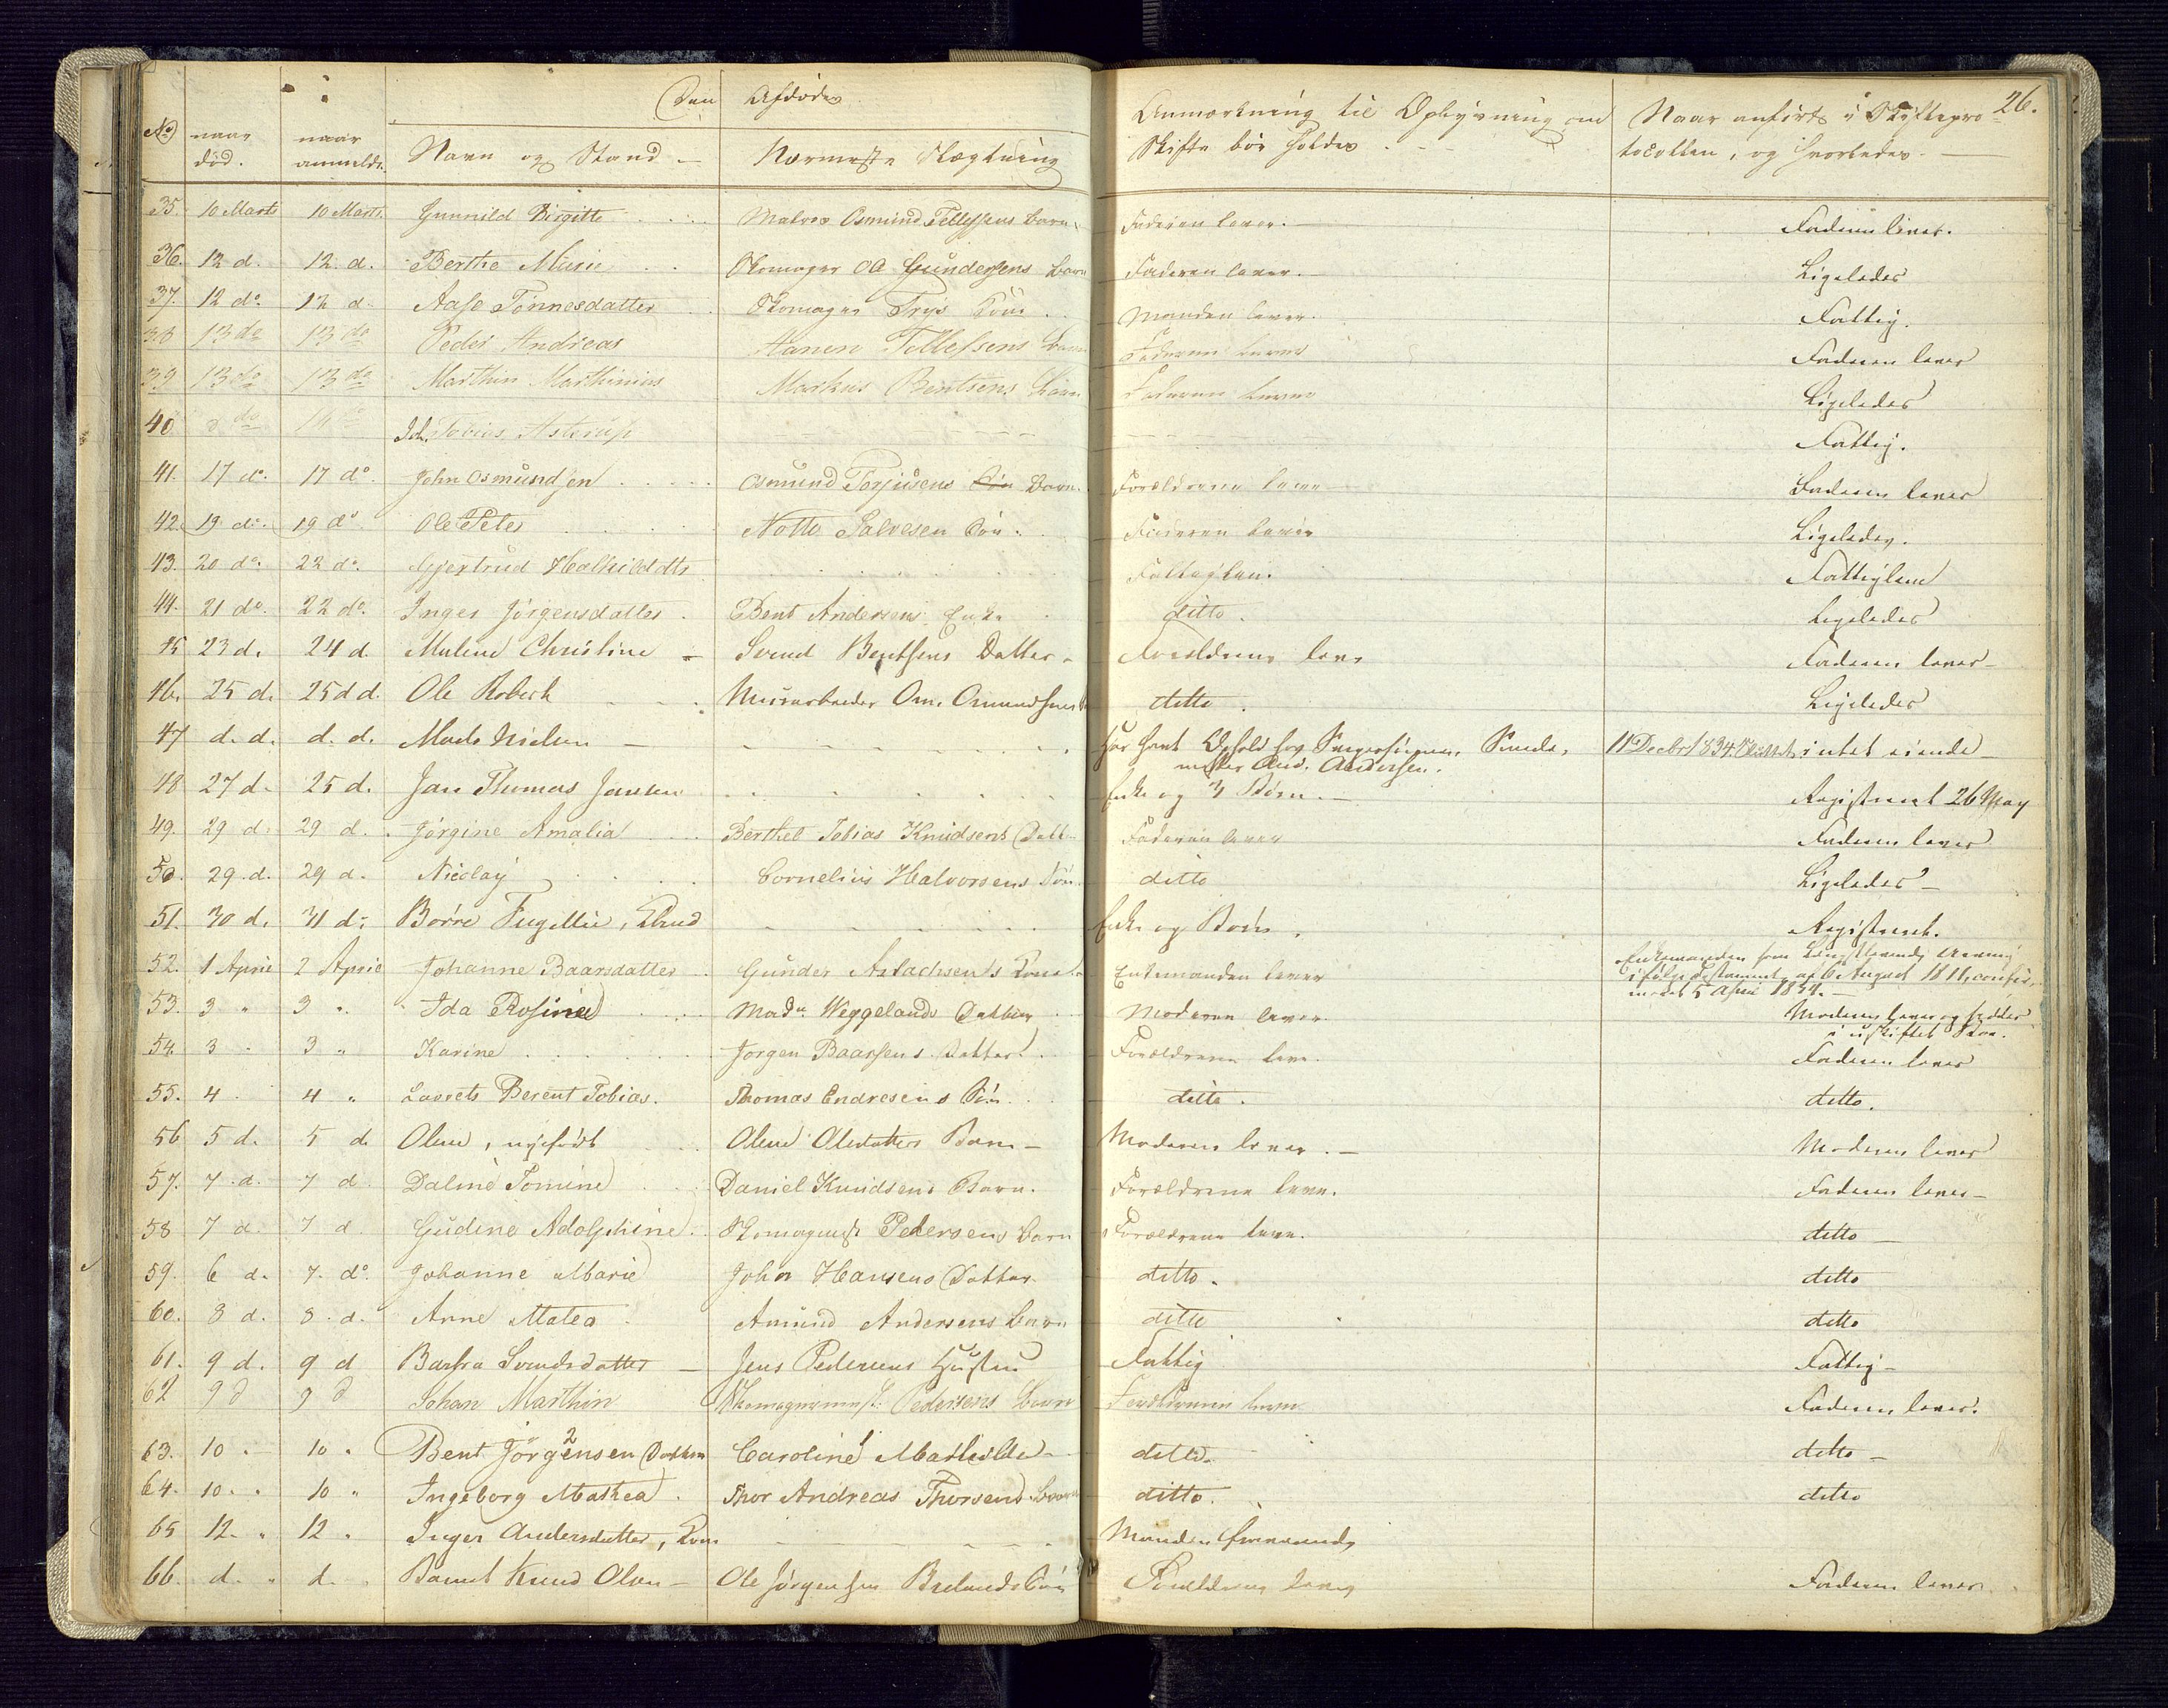 26.
No
naar død.
naar anmeldt.
Den Afdødes
Navn og Stand
Nærmeste Slægtning
Anmærkning til Oplysning om Skifte bør holdes
Naar anført i Skifteprotocollen, og hvorledes.
35. 10 Marts 10 Marts Gunnild Birgitte Osmund Tellefsens Barn Faderen lever. Faderen lever.
36. 12 d. 12 d. Berthe Marie Skomager Gundersens Barn Faderen lever. Ligeledes
37. 12 do. 12 d. Aase Tønnesdatter Skomager Kone Manden lever. Fattig.
38 13 do 13 do Peder Andreas Aanen Tellefsens Barn Faderen lever Faderen lever
39 13 do 13 do Marthin Marthinius Markus Bentsens Barn Faderen lever Ligeledes
40 do Tobias Asterup Fattig.
41. 17 do. 17 do John Osmundsen Osmund Torjusens Søn Barn. Forældrene leve Faderen lever
42. 19 do. 19 do Ole Peter Notto Salvesen Søn. Faderen lever Ligeledes.
43. 20 do. 22 do. Gjertrud Fattiglem Fattiglem
44. 21 do. 22 do. Inger Jörgensdatter Bent Andersens Enke ditto. Ligeledes
45 23 d. 24 d. Malene Christine Svend Bentsens Datter Forældrene leve Faderen lever
46. 25 d. 25 d d. Ole Robert Om. Omundsens ditto. Ligeledes
47 d. d. d. d. Mads Nielsen Har havt Ophold hos
And. Andersen. 11 Decbr 1834 intet eiende
48 27 d. 25 d. Jan Thomas Jansen Enke og Børn. Registreret 26 May
49. 29 d. 29 d. Jørgine Amalia Berthel Tobias Knudsens Datt. Faderen lever Faderen lever
50. 29 d. 29 d. Nicolay Cornelius Halvorsens Søn. ditto Ligeledes
51. 30 d. 31 d. Børre Enke og Børn. Registreret.
52. 1 April 2 April Johanne Baarsdatter Gunder Aslachsen's Kone Enkemanden lever Enkemanden som Længstlevende
ifølge Testament af 6 August 1811, confir-
meret 5 April 1834.
53. 3 " 3 " Ida Rosine Mad. Weggelands Datter Moderen lever Moderen lever og sidder
i uskiftet Boe.
54. 3 " 3 " Karine Jørgen Baarsens Datter Forældrene leve. Faderen lever
55. 4 " 4 " Berent Tobias. Thomas Endresens Søn ditto. ditto.
56 5 d. 5 d Olene, nyefødt Olene Olsdatters Barn Moderen lever. Moderen lever
57. 7 d. 7 d Daline Tomine Daniel Knudsens Barn. Forældrene leve. Faderen lever
58 7 d 7 d Gudine Adolphine Skomagermst Pedersens Barn Forældrene leve. ditto
59. 6 d. 7. do. Johanne Marie John Hansens Datter ditto. ditto
60. 8 d. 8 d. Anne Matea Amund Andersens Barn ditto ditto
61. 9 d. 9 d Barbra Svendsdatter Jens Pedersens Hustru Fattig Fattig
62 9 d 9 d Johan Marthin Skomagermest: Pedersens Barn Forældrene leve Faderen lever.
63. 10 10 Bent Jørgensen 2 Datter Caroline 1 Mathilde ditto. ditto
64. 10 " 10 " Ingeborg Mathea Thor Andreas Thorsens Barn ditto. ditto
65 12 " 12 " Inger Andersdatter, Kone Manden
66. d. " d. " Knud Olsen Ole Jørgensen Søn Forældrene leve Faderen lever